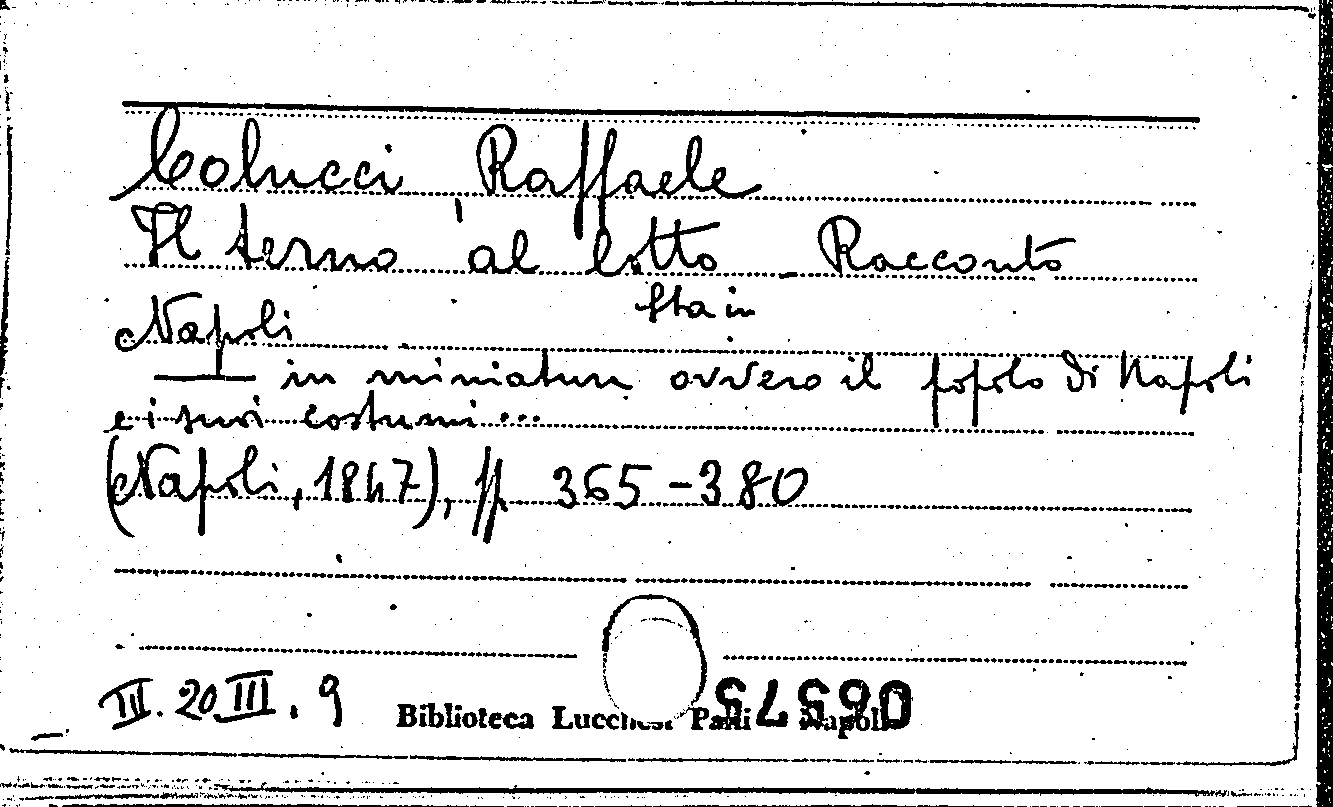 Colucci Raffaele
Il terno al lotto - Racconto
Sta in
Napoli
in miniatura ovvero il popolo di Napoli
e i suoi costumi...
(Napoli, 1847), pp. 365-380
III. 20 III. 9
Biblioteca Lucchesi Palli Napoli
06575